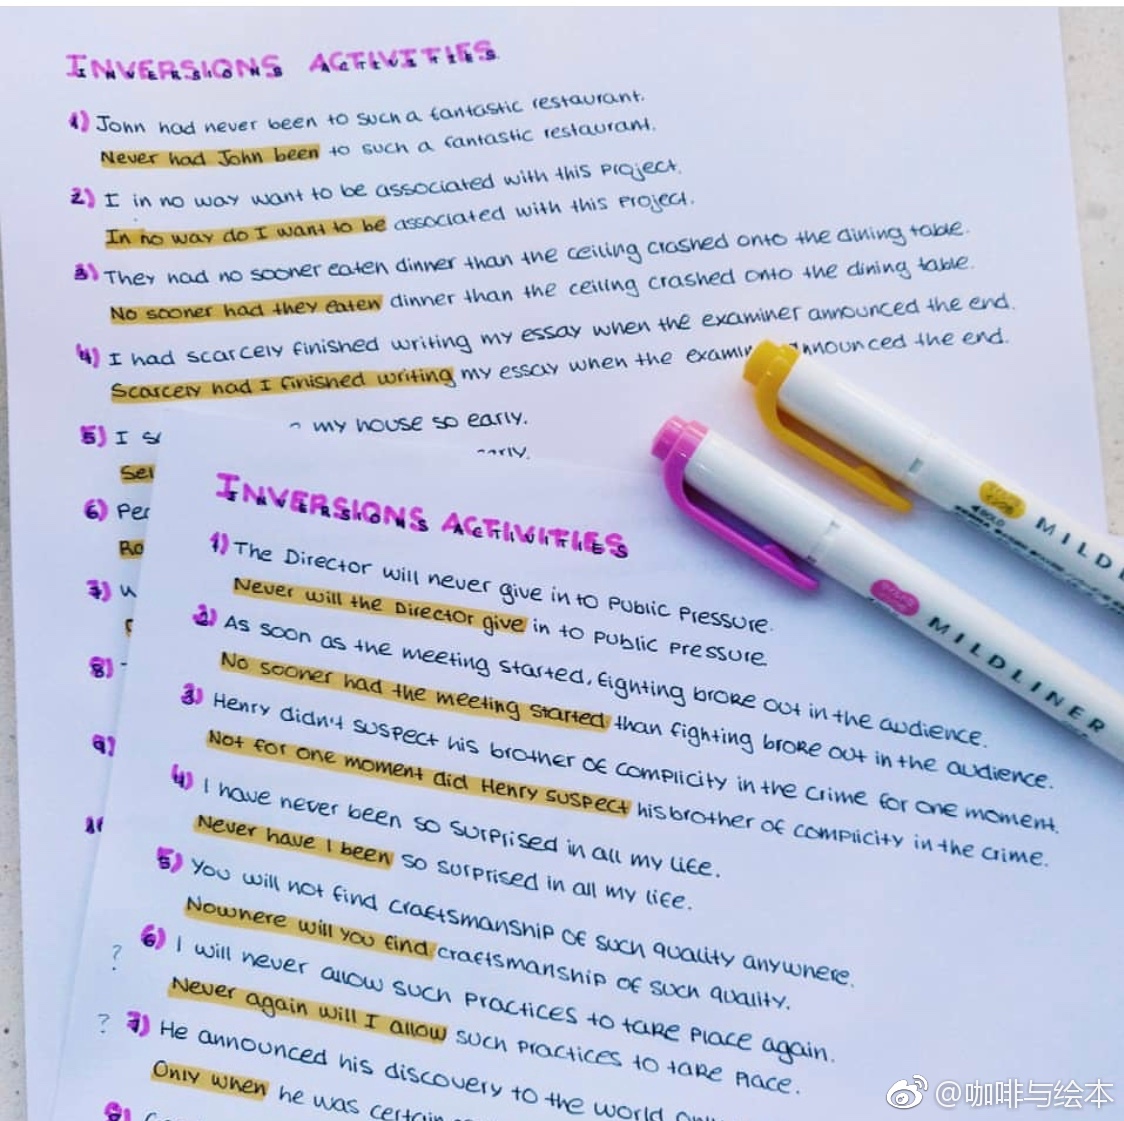 INVERSIONS ACTIVITIES
1) John had never been to such a fantastic restaurant.
Never had John been to such a fantastic restaurant.
2) I in no way want to be associated with this project.
In no way do I want to be associated with this project.
3) They had no sooner eaten dinner than the ceiling crashed onto the dining table.
No sooner had they eaten dinner than the ceiling crashed onto the dining table.
4) I had scarcely finished writing my essay when the examiner announced the end.
Scarcely had I finished writing my essay when the announced the end.
5) I my house so early.
6)
7)
8)
9)
INVERSIONS ACTIVITIES
1) The Director will never give in to public pressure.
Never will the Director give in to public pressure.
2) As soon as the meeting started, fighting broke out in the audience.
No sooner had the meeting started than fighting broke out in the audience.
3) Henry didn't suspect his brother of complicity in the crime for one moment.
Not for one moment did Henry suspect his brother of complicity in the crime.
4) I have never been so surprised in all my life.
Never have I been so surprised in all my life.
5) You will not find craftsmanship of such quality anywhere.
Nowhere will you find craftsmanship of such quality.
? 6) I will never allow such practices to take place again.
Never again will I allow such practices to take place.
? 7) He announced his discovery to the world
Only when he was certain
8)
MILDLINER
@咖啡与绘本